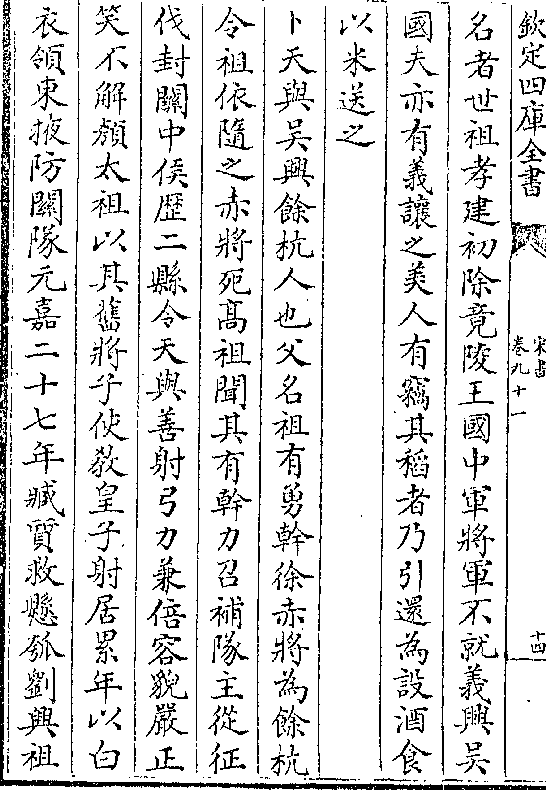 欽定四庫全書
宋書
卷九十一
十四
名者世祖孝建初除竟陵王國中軍將軍不就義興吴
國夫亦有義讓之美人有竊其稻者乃引還為設酒食
以米送之
卜天與吴興餘杭人也父名祖有勇幹徐赤將為餘杭
令祖依隨之赤將死髙祖聞其有幹力召補隊主從征
伐封關中侯歴二縣令天與善射弓力兼倍容貌嚴正
笑不解顔太祖以其舊將子使敎皇子射居累年以白
衣領東掖防闗隊元嘉二十七年臧質救懸瓠劉興祖